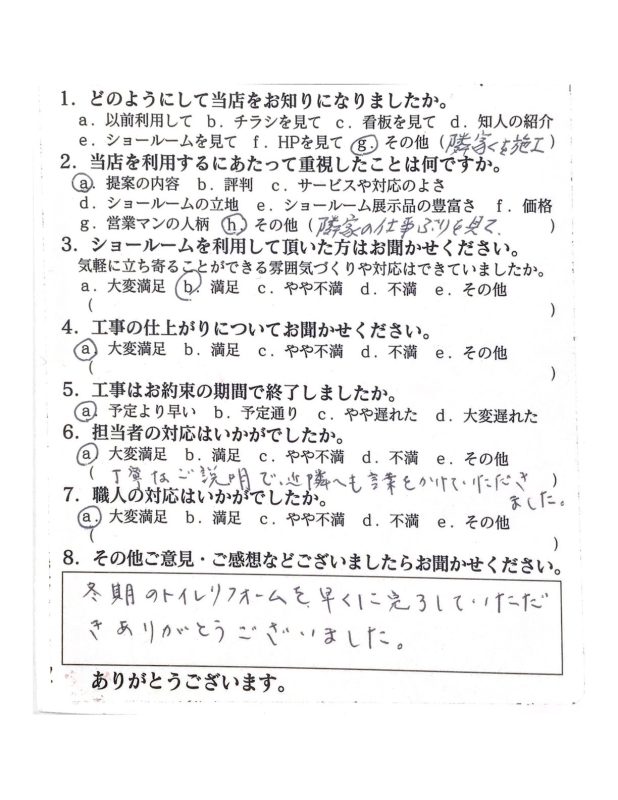 1．どのようにして当店をお知りになりましたか。
a．以前利用して b．チラシを見て c．看板を見て d．知人の紹介
e．ショールームを見て f．HPを見て g．その他（隣家を施工）
2．当店を利用するにあたって重視したことは何ですか。
a．提案の内容 b．評判 c．サービスや対応のよさ
d．ショールームの立地 e．ショールーム展示品の豊富さ f．価格
g．営業マンの人柄 h．その他（隣家の仕事ぶりを見て、）
3．ショールームを利用して頂いた方はお聞かせください。
気軽に立ち寄ることができる雰囲気づくりや対応はできていましたか。
a．大変満足 b．満足 c．やや不満 d．不満 e．その他
（ ）
4．工事の仕上がりについてお聞かせください。
a．大変満足 b．満足 c．やや不満 d．不満 e．その他
（ ）
5．工事はお約束の期間で終了しましたか。
a．予定より早い b．予定通り c．やや遅れた d．大変遅れた
6．担当者の対応はいかがでしたか。
a．大変満足 b．満足 c．やや不満 d．不満 e．その他
（丁寧なご説明で、近隣へも言葉をかけていただき）
ました。
7．職人の対応はいかがでしたか。
a．大変満足 b．満足 c．やや不満 d．不満 e．その他
（ ）
8．その他ご意見・ご感想などございましたらお聞かせください。
冬期のトイレリフォームを早くに完了していただ
きありがとうございました。
ありがとうございます。